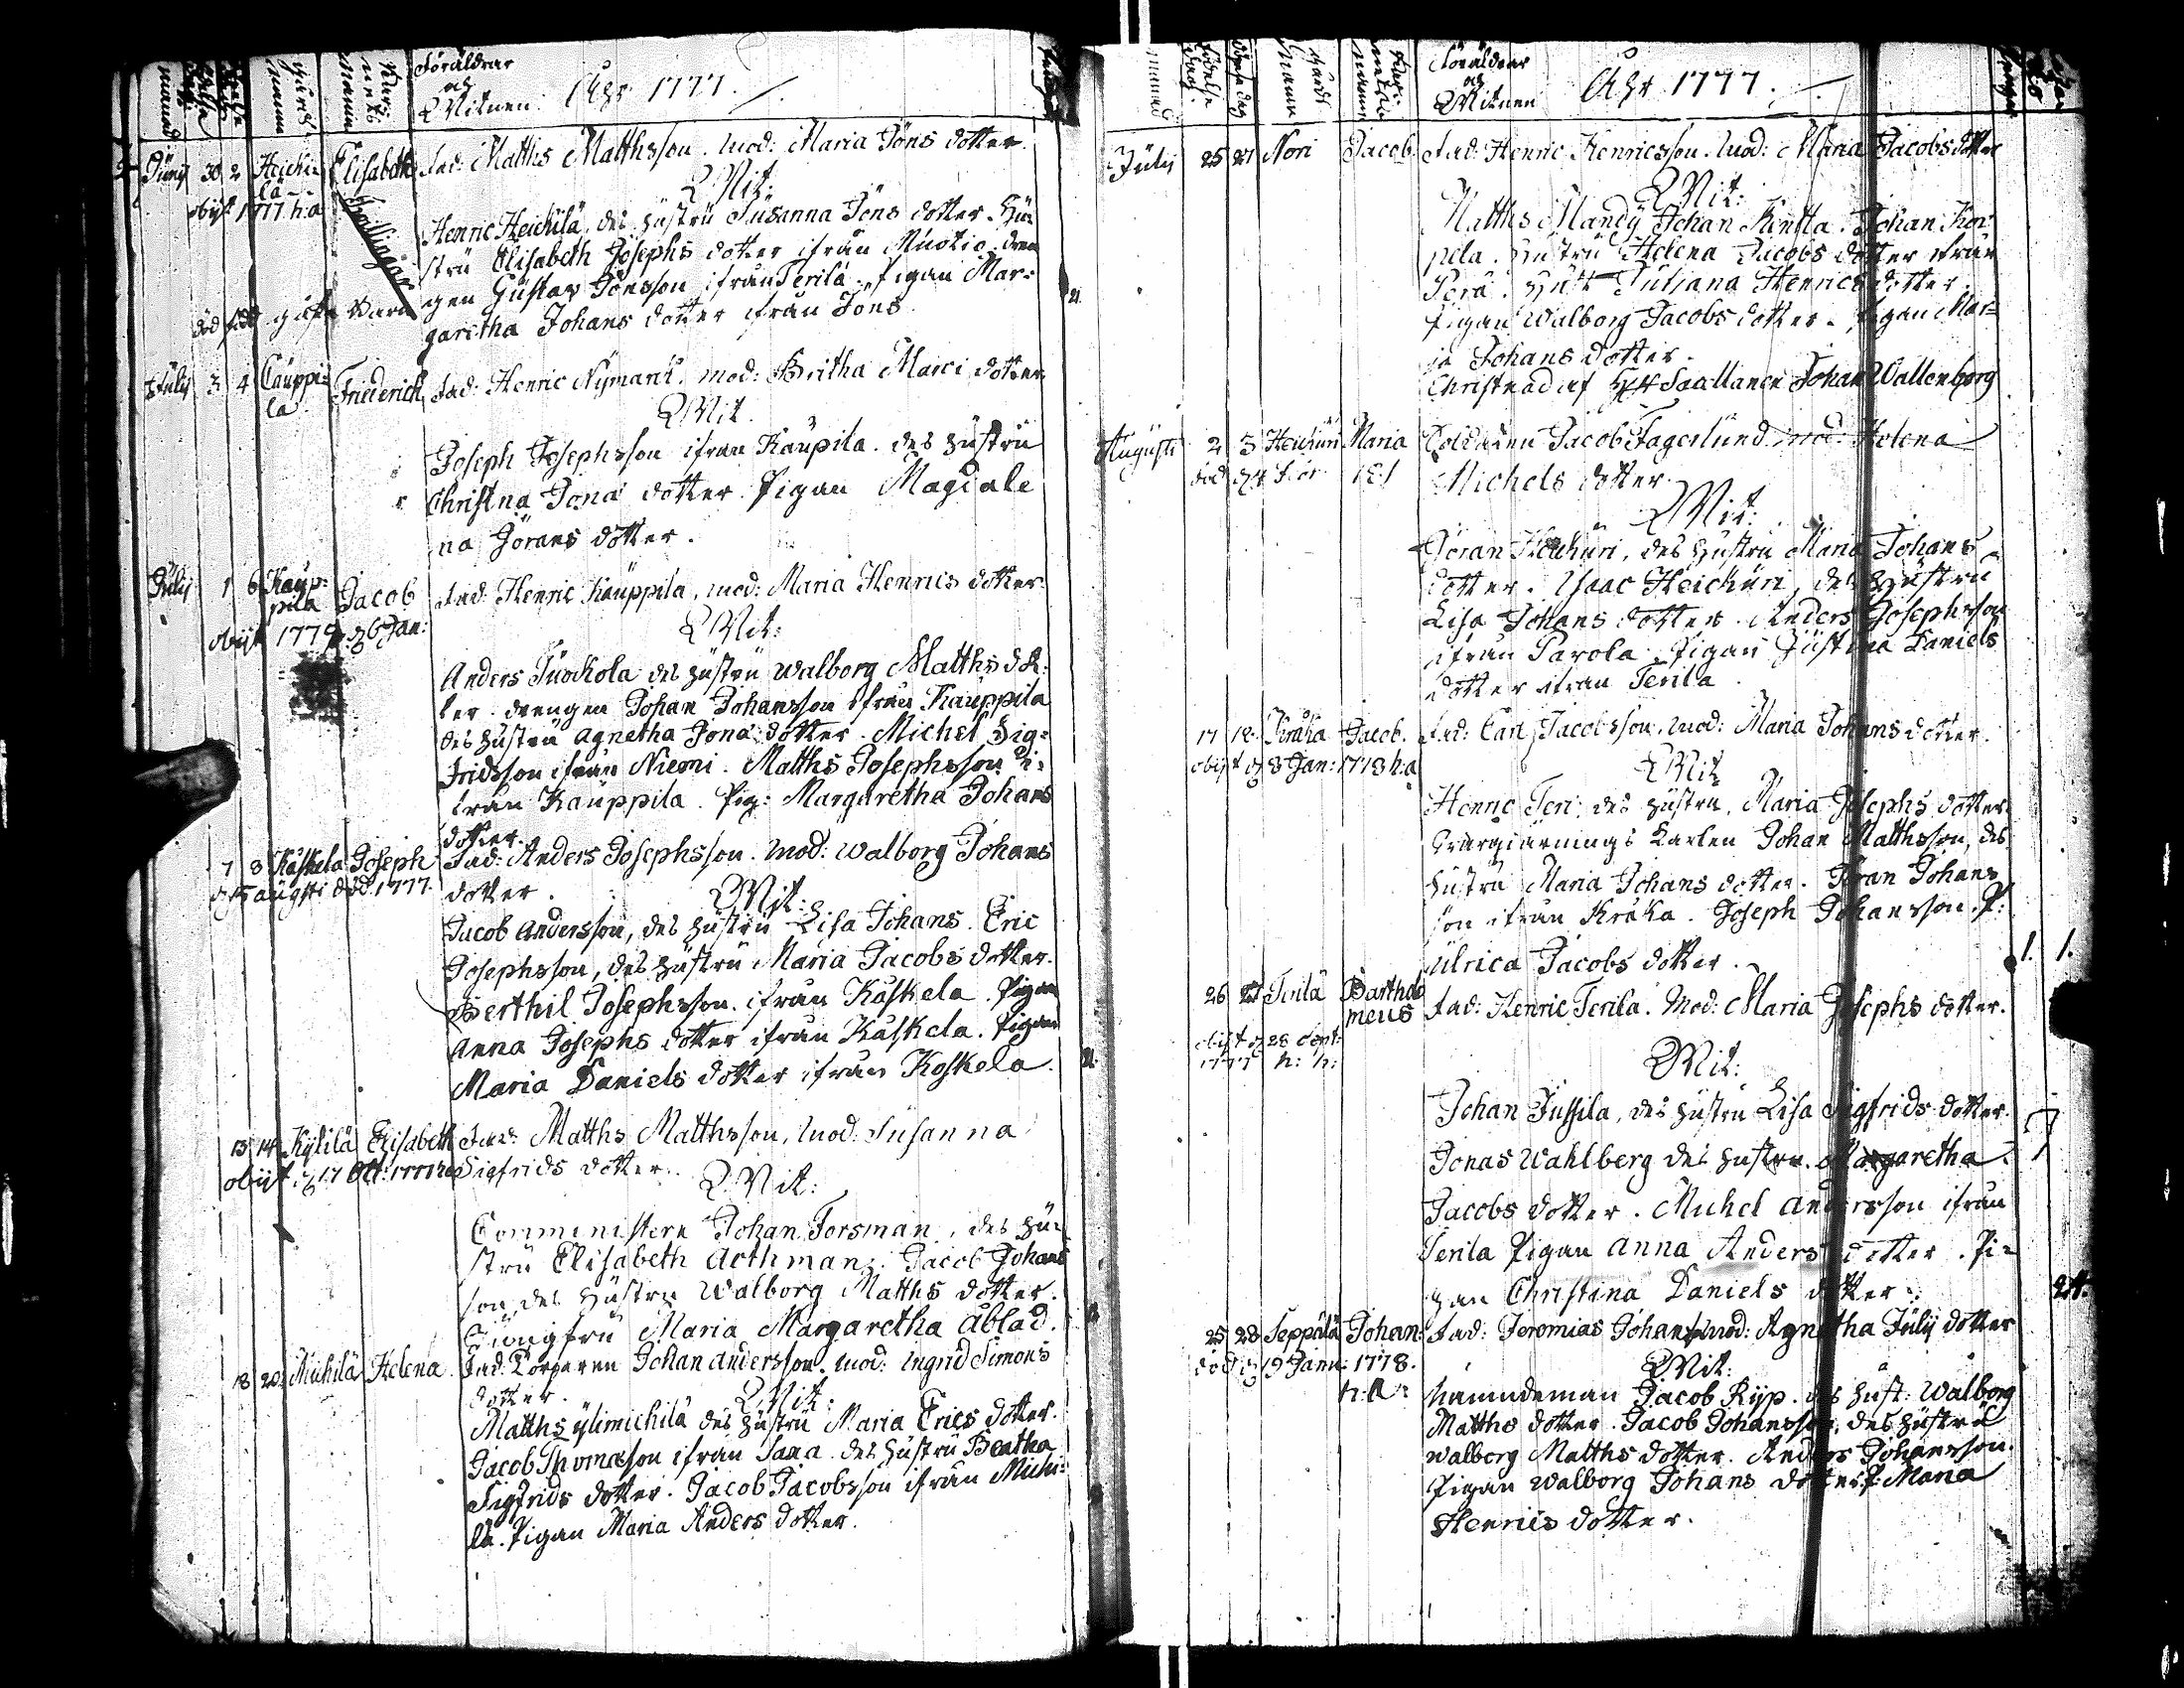 Föräldrar
och
Witnen. Åhr 1777.
Junij 30 2 Heicki= Elisabeth fad: Matths Matthsson. mod: Maria Jöns dotter.
lä Wit:
obijt 1777 h:a
Henric Heickilä, des hustru Susanna Jöns dotter. Hu=
stru Elisabeth Josephs dotter ifrån Muotio. dren
gen Gustav Jönsson ifrån Terilä. Pigan Mar=
garetha Johans dotter ifrån Jöns.
Julij 3 4 Cauppi= Friederich fad: Henric Nyman. mod: Britha Marci dotter
la Wit.
Joseph Josephsson ifrån Kaupila. des hustru
Christna Jona dotter. Pigan Magdale
na Jörans dotter.
Julij 1 6 Kaup= Jacob fad: Henric Kauppila, mod: Maria Henrics dotter.
pila Wit:
obijt 1779 d. 6 Jan:
Anders Tuockola des hustru Walborg Matths dot
ter. drengen Johan Johansson ifrån Kauppila
des hustru Agnetha Jona dotter. Michel Sig=
fridsson ifrån Niemi. Matths Josephsson i=
från Kauppila. Pig: Margaretha Johans
dotter.
7 8 Kåskela Joseph fad: Anders Josephsson. mod: Walborg Johans
d. 15 augsti död 1777. dotter. Wit:
Jacob Andersson, des hustru Lisa Johans. Eric
Josephsson, des hustru Maria Jacobs dotter.
Berthil Josephsson ifrån Kåskela. Pigan
Anna Josephs dotter ifrån Kåskela. Pigan
Maria Daniels dotter ifrån Koskela.
13 14 Kylilä Elisabeth fad: Matths Matthsson, mod: Susanna
obijt d. 17 Oct: 1777 Sigfrids dotter. Wit:
Comministern Johan Forsman, des hu=
stru Elisabeth Aethman. Jacob Johans
son, des hustru Walborg Matths dotter.
Jungfru Maria Margaretha Åblad.
18 20 Michilä Helena fad: Torparen Johan Andersson, mod: Ingrid Simons
dotter. Wit:
Matths Ylimichilä des hustru Maria Erics dotter.
Jacob Thomasson ifrån Sana. des hustru Beatha
Sigfrids dotter. Jacob Jacobsson ifrån Michi=
lä. Pigan Maria Anders dotter.
Föräldrar
och
Witnen Åhr 1777.
Julij 25 27 Nori Jacob fad: Henric Henricsson. mod: Maria Jacobs dotter
Wit:
Matths Mandy Johan Kintta. Johan Kor
pela. hustru Helena Jacobs dotter ifrån
Perä. hust: Juliana Henrics dotter.
Pigan Walborg Jacobs dotter. Pigan Mar=
ia Johans dotter.
Christnad af Johan Wallenborg
Augusti 2 3 Heickuri Maria Soldaten Jacob Fagerlund. mod: Helena
Michels dotter.
Wit:
Göran Heickuri, des hustru Maria Johans
dotter. Isaac Heickuri, des hustru
Lisa Johans dotter. Anders Josephsson
ifrån Parola. Pigan Justina Daniels
dotter ifrån Terila.
17 18 Kråka Jacob. fad: Carl Jacobsson, mod: Maria Johans dotter.
obijt d. 8 Jan: 1778 h:a Wit
Henric Teri: des hustru, Maria Josephs dotter.
Karlen Johan Matthsson, des
hustru Maria Johans dotter. Göran Johans
son ifrån Kråka. Joseph Johansson. P:
Ulrica Jacobs dotter. 1. 1.
26 27 Terilä Bartholo fad: Henric Terila. Mod: Maria Josephs dotter.
meus
obijt d 28 Sept:
1777 h: h: Wit:
Johan Jussila, des hustru Lisa Sigfrids dotter.
Jonas Wahlberg des hustru. Margaretha
Jacobs dotter. Michel Andersson ifrån
Terila Pigan Anna Anders dotter. Pi=
gan Christina Daniels dotter.
25 28 Seppälä Johan: fad: Jeremias Johans mod: Agnetha Julij dotter
död d 19 Janu: 1778. Wit:
h:a: Namndeman Jacob Ryp. des hust: Walborg
Matths dotter. Jacob Johansson, des hustru
Walborg Matths dotter. Anders Johansson.
Pigan Walborg Johans dotter. P: Maria
Henrics dotter.